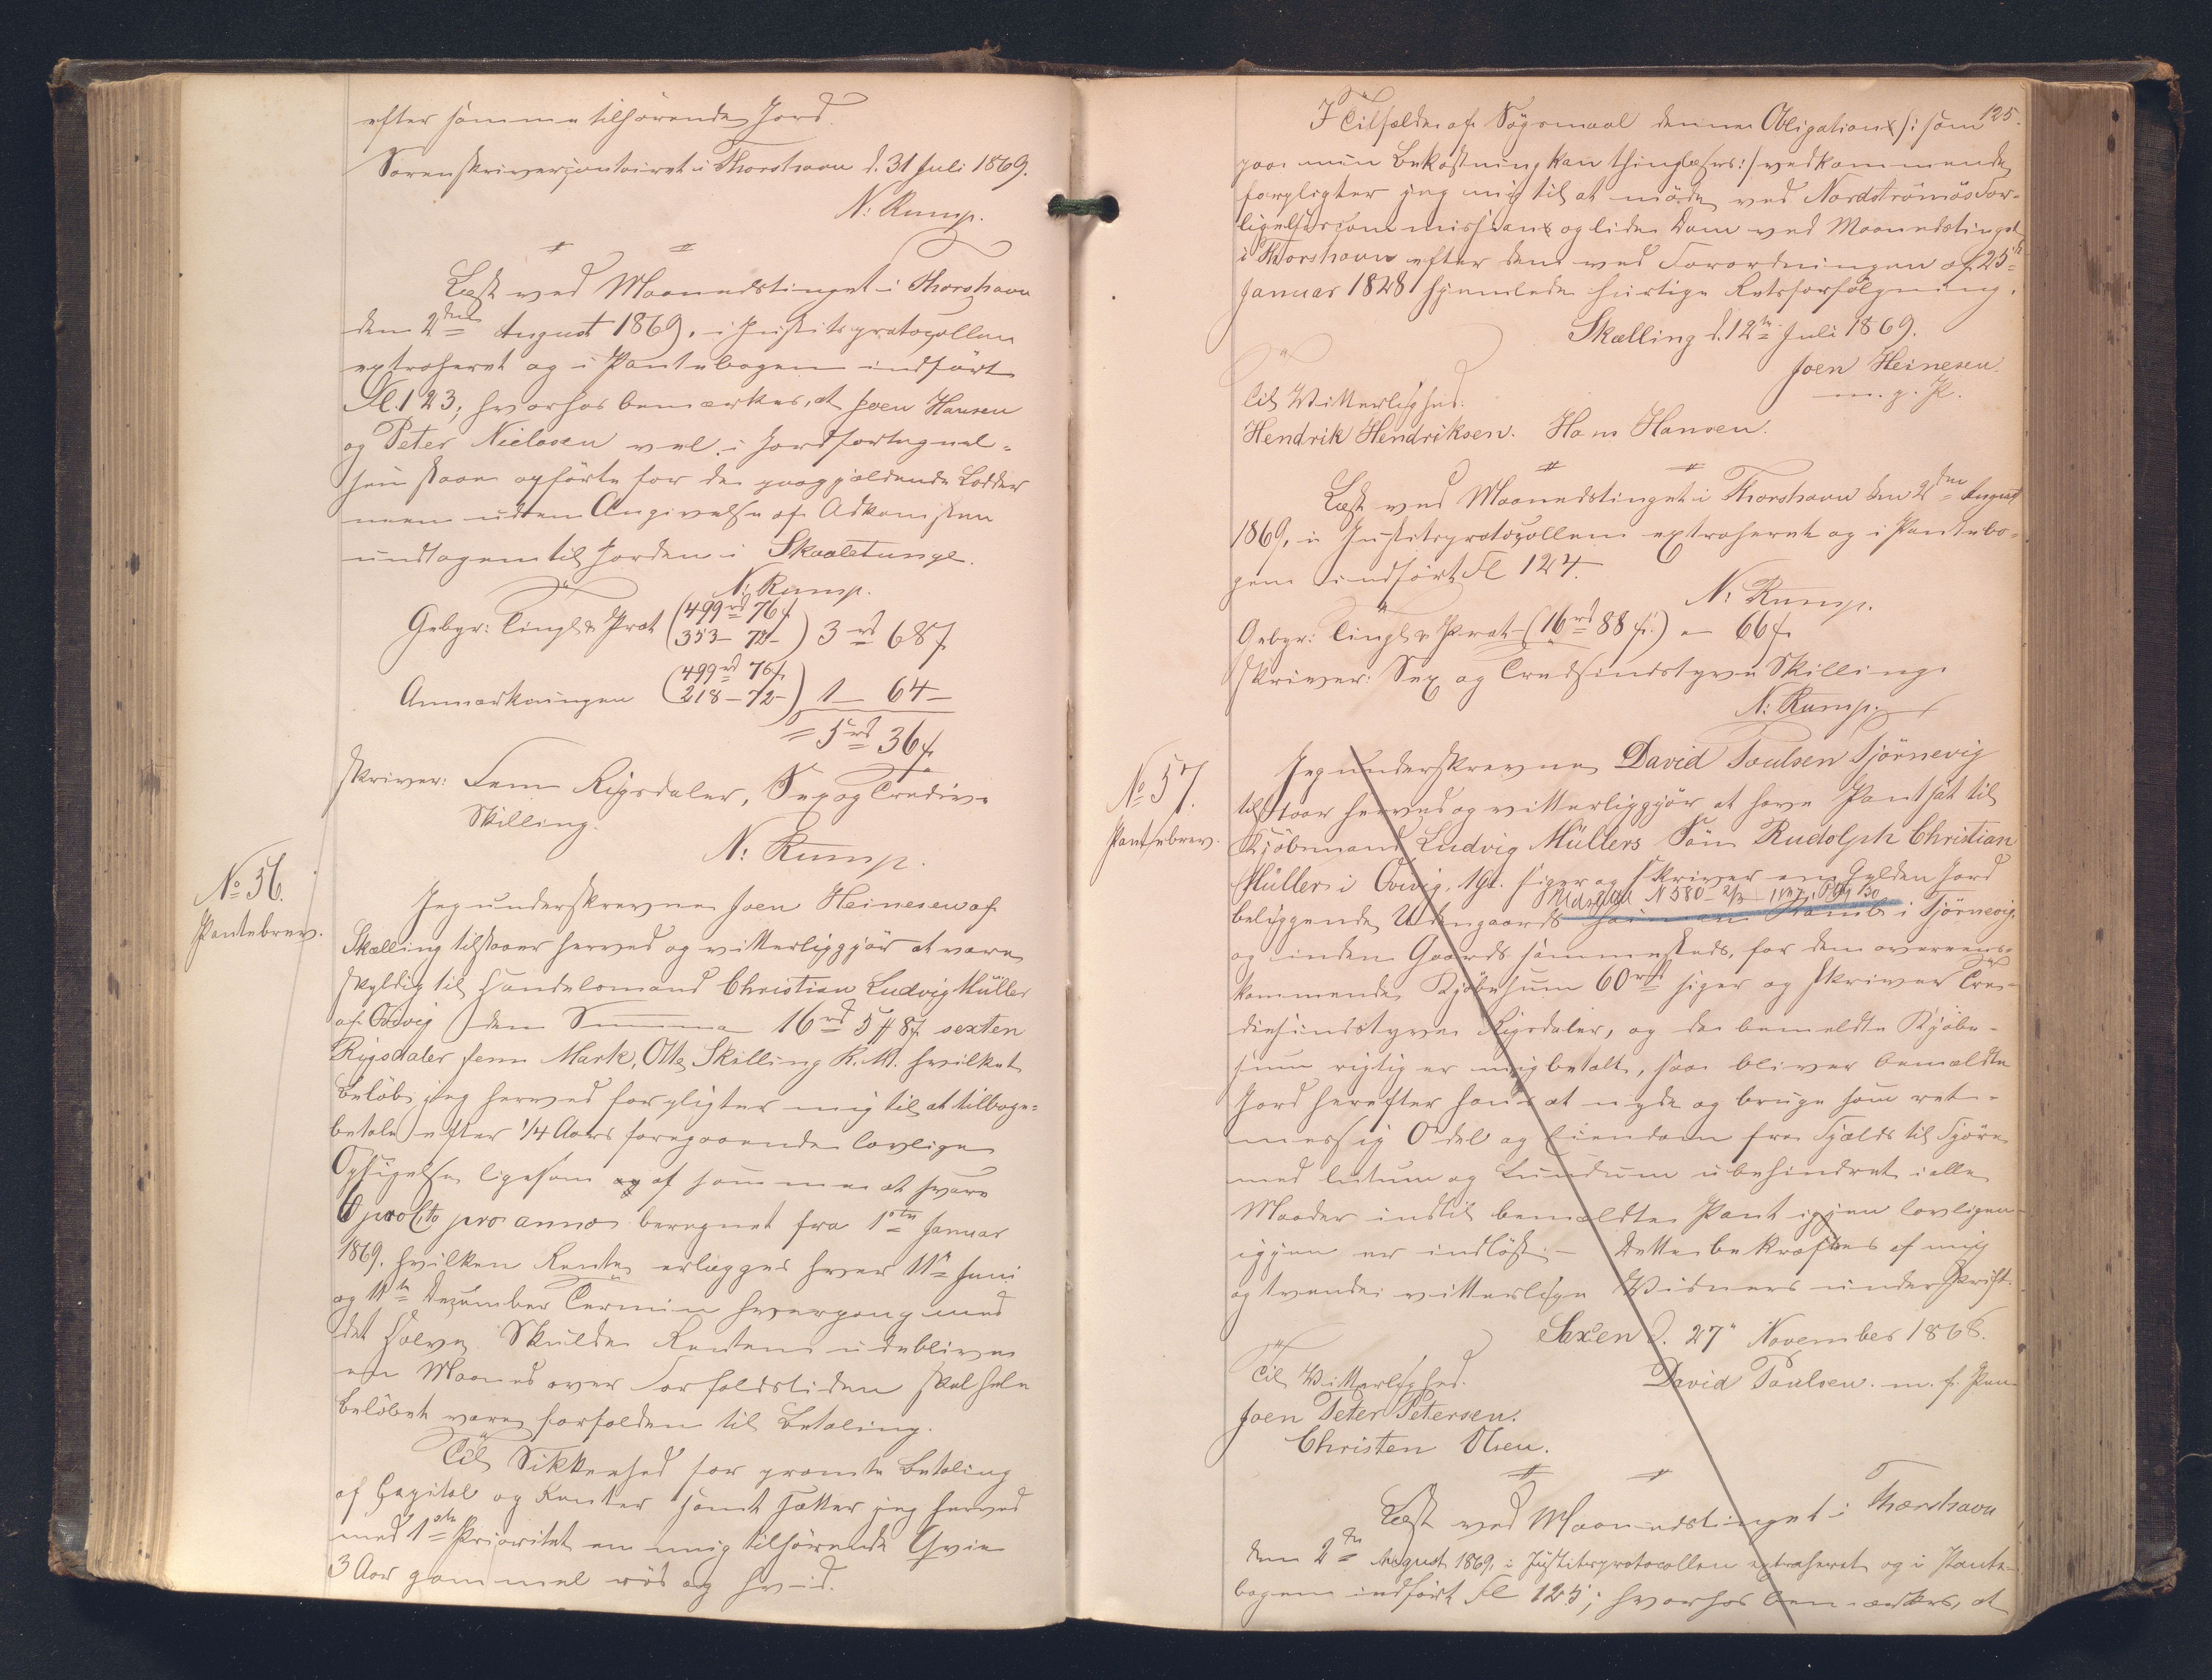 efter samme tilhørende Jord.
Sorenskrivercontoiret i Thorshavn d. 31 Juli 1869.
N: Rump.
Læst ved Maanedstinget i Thorshavn
den 2den August 1869, i Justitsprotocollen
extraheret og i Pantebogen indført
Fl. 123; hvorhos bemærkes, at Joen Hansen
og Peter Nielssen vel i Jordfortegnel-
sen staae opførte for de paagjældende Lodder
men uden Angivelse af Adkomsten
undtagen til Jorden i Skaaletunge.
N: Rump.
Gebyr: Tingl & Prot (499rd 76s
353 - 72 - ) 3rd 68s
Anmærkningen (499rd 76s
218 - 72 -) 1 - 64 -
= 5rd 36s
skriver: Fem Rigsdaler, Sex og Tredive
Skilling.
N: Rump.
No 56.
Pantebrev.
Jeg underskrevne Joen Heinesen af
Skælling tilstaaer herved og vitterliggjør at være
skyldig til Handelsmand Christian Ludvig Müller
af Qvivig den Summa 16rd 5# 8s sexten
Rigsdaler fem Mark, Otte Skilling R.M. hvilket
Beløb jeg herved forpligter mig til at tilbage-
betale efter 1/4 Aars foregaaende lovlige
Opsigelse ligesom og af samme at svare
4 pro Cto pro anno beregnet fra 1ste Januar
1869. hvilken Rente erlægges hver 11te Juni
og 11te Dezember Termin hvergang med
det halve. Skulde Renten udeblive
en Maaned over Forfaldstiden skal hele
Beløbet være forfalden til Betaling.
Til Sikkerhed for promte Betaling
af Capital og Renter samt sætter jeg herved
med 1ste Prioritet en mig tilhørende Qvie
3 Aar gammel rød og hvid.
125.
I Tilfælde af Søgsmaal denne Obligation /: som
paa min Bekostning kan thinglæses :/ vedkommende
forpligter jeg mig til at møde ved Nordstrømøs For-
ligelsescommission og lide Dom ved Maanedstinget
i Thorshavn efter den ved Forordningen af 25de
Januar 1828 hjemlede hurtige Retsforfølgning.
Skælling d. 12te Juli 1869.
Joen Heinesen
m. p. P.
Til Vitterlighed:
Hendrik Hendriksen. Hans Hansen.
Læst ved Maanedstinget i Thorshavn den 2den August
1869, i Justitsprotocollen extraheret og i Pantebo-
gen indført Fl 124.
N: Rump.
Gebyr: Tingl & Prot - (16rd 88s) = 66s
skriver: Sex og Tredsindstyve Skilling.
N: Rump.
No 57.
Pantebrev.
Jeg underskrevne David Poulsen Tjørnevig
tilstaar herved og vitterliggjør at have Pantsat til
Kjøbmand Ludvig Müllers Søn Rudolph Christian
Müller i Qvivig, 1Gl. siger og skriver en Gylden Jord
Udslettet N 580 - 2/3 - 1887,
beliggende Udengaards i Tjørnevig
og inden Gaards sammesteds, for den overeens-
kommende Kjøbesum 60rd siger og skriver Tre-
dsindstyve Rigsdaler, og da bemeldte Kjøbe-
sum rigtig er mig betalt, saa bliver bemældte
Jord herefter hans at nyde og bruge som ret-
mæssig Odel og Eiendom fra Fjælds til Fjære
med lutum og Lundum ubehindret i alle
Maader indtil bemældte Pant igjen lovligen
igjen er indløst. - Dette bekræftes af mig
og tvende vitterlige Vidners underskrift.
Saxen d. 27" November 1868.
Til Vitterlighed.
David Poulsen. m. f. Pen
Joen Peter Petersen.
Christen Olsen.
Læst ved Maanedstinget i Thorshavn
den 2den August 1869, i Justitsprotocollen extraheret og i Pante-
bogen indført Fl 125; hvorhos bemærkes, at